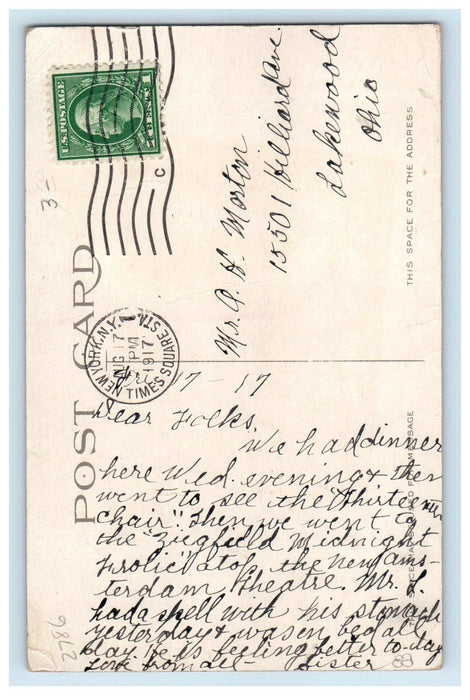 U.S. POSTAGE
1 CENT 1
3-
C
POST CARD
NEW YORK, N.Y.
AUG 17
PM
1917
TIMES SQUARE STA.
THIS SPACE FOR THE ADDRESS
Mrs. A H Morton
15501 Hilliard Ave.
Lakewood
Ohio
17 - 17
Dear Folks,
We had dinner
here Wed. evening & then
went to see the "Thirteenth
chair". Then we went to
the "Ziegfeld Midnight
Frolic" atop the new Ams-
terdam Theatre. Mr. L.
had a spell with his stomach
yesterday & was in bed all
day. He is feeling better to-day
Love from all - Sister
2786